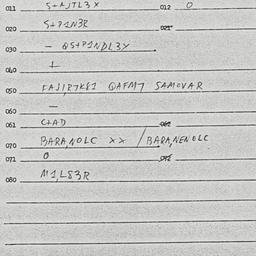 011 S+AJTL3X 012 0
020 S+P1N3R 021
030 - QS+P1NDL3Y.
040 +
050 FAJ1R7K81 QAFM7 SAMOVAR
060 -
061 C+AD 062
070 BARA,NOLC XX / BARA,NENOLC
071 0 072
080 M1,L83R